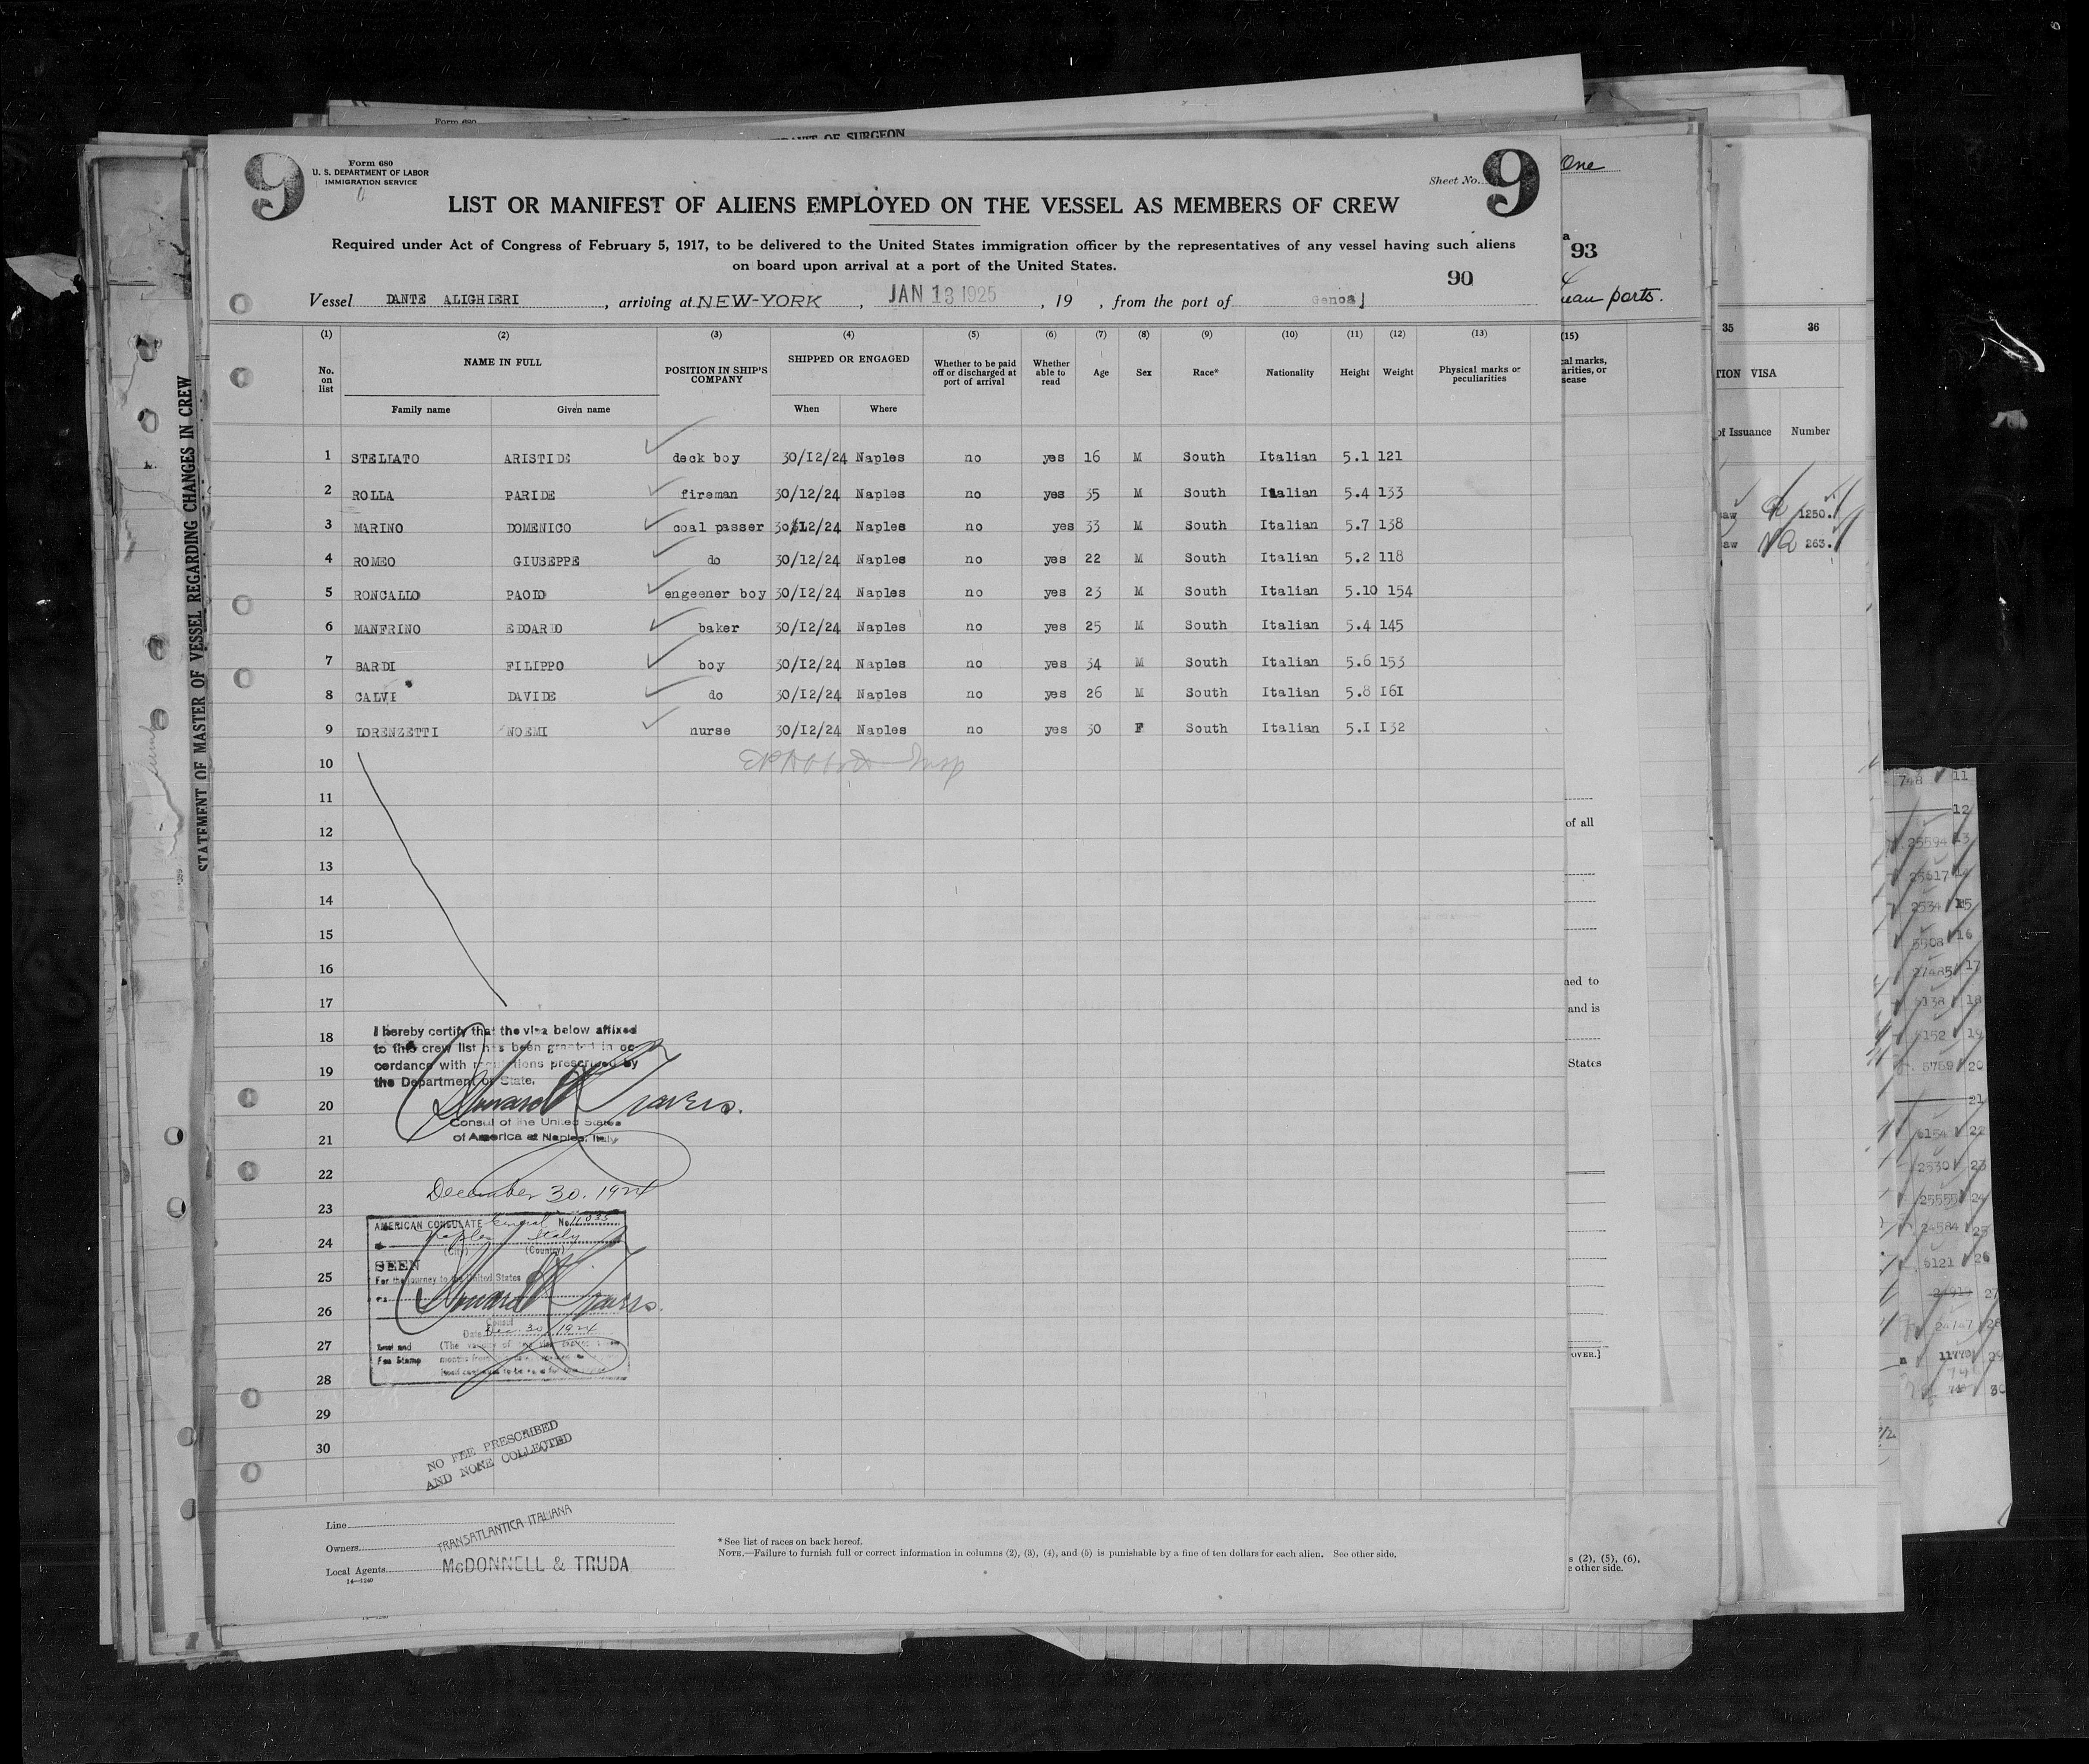 Form 680
AVIT OF SURGEON
9
Form 680
U. S. DEPARTMENT OF LABOR
IMMIGRATION SERVICE
Sheet No.
9
One
LIST OR MANIFEST OF ALIENS EMPLOYED ON THE VESSEL AS MEMBERS OF CREW
Required under Act of Congress of February 5, 1917, to be delivered to the United States immigration officer by the representatives of any vessel having such aliens
on board upon arrival at a port of the United States.
90
93
Vessel DANTE ALIGHIERI, arriving at NEW-YORK, JAN 13 1925, 19 , from the port of Genoa
ports.
(1) (2) (3) (4) (5) (6) (7) (8) (9) (10) (11) (12) (13) (15)
No. on list
NAME IN FULL
Family name Given name
POSITION IN SHIP'S COMPANY
SHIPPED OR ENGAGED
When Where
Whether to be paid off or discharged at port of arrival
Whether able to read
Age Sex Race* Nationality Height Weight
Physical marks or peculiarities
1 STELLATO ARISTIDE deck boy 30/12/24 Naples no yes 16 M South Italian 5.1 121
2 ROLLA PARIDE fireman 30/12/24 Naples no yes 35 M South Italian 5.4 133
3 MARINO DOMENICO coal passer 30/12/24 Naples no yes 33 M South Italian 5.7 138
4 ROMEO GIUSEPPE do 30/12/24 Naples no yes 22 M South Italian 5.2 118
5 RONCALLO PAOLO engeener boy 30/I2/24 Naples no yes 23 M South Italian 5.10 154
6 MANFRINO EDOARDO baker 30/I2/24 Naples no yes 25 M South Italian 5.4 145
7 BARDI FILIPPO boy 30/I2/24 Naples no yes 34 M South Italian 5.6 153
8 CALVI DAVIDE do 30/I2/24 Naples no yes 26 M South Italian 5.8 I6I
9 LORENZETTI NOEMI nurse 30/I2/24 Naples no yes 30 F South Italian 5.I I32
10
11
12
13
14
15
16
17
18
19
20
21
22
23
24
25
26
27
28
29
30
I hereby certify that the visa below affixed
to this crew list has been granted in ac-
cordance with regulations prescribed by
the Department of State.
Consul of the United States
of America at Naples, Italy
December 30. 1924
AMERICAN CONSULATE General No.
Naples Italy
(City) (Country)
SEEN
For the journey to the United States
Consul
Date Dec. 30/1924
Seal and
Fee Stamp
NO FEE PRESCRIBED
AND NONE COLLECTED
Line
Owners TRANSATLANTICA ITALIANA
Local Agents McDONNELL & TRUDA
14—1240
* See list of races on back hereof.
NOTE.—Failure to furnish full or correct information in columns (2), (3), (4), and (5) is punishable by a fine of ten dollars for each alien. See other side.
STATEMENT OF MASTER OF VESSEL REGARDING CHANGES IN CREW
of all
and is
States
OVER.]
s (2), (5), (6),
other side.
35 36
TION VISA
of Issuance Number
1250.
263.